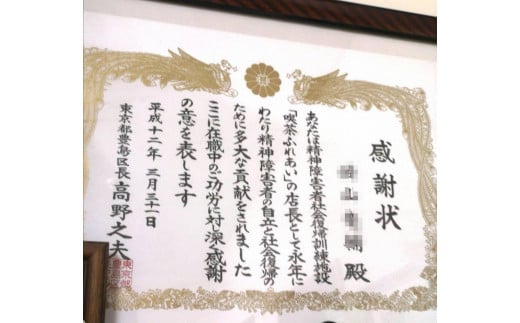 感謝状
殿
あなたは精神障害者社会復帰訓練施設
「喫茶ふれあい」の店長として永年に
わたり精神障害者の自立と社会復帰の
ために多大な貢献をされました
ここに在職中のご功労に対し深く感謝
の意を表します
平成十二年 三月三十一日
東京都豊島区長 高野之夫